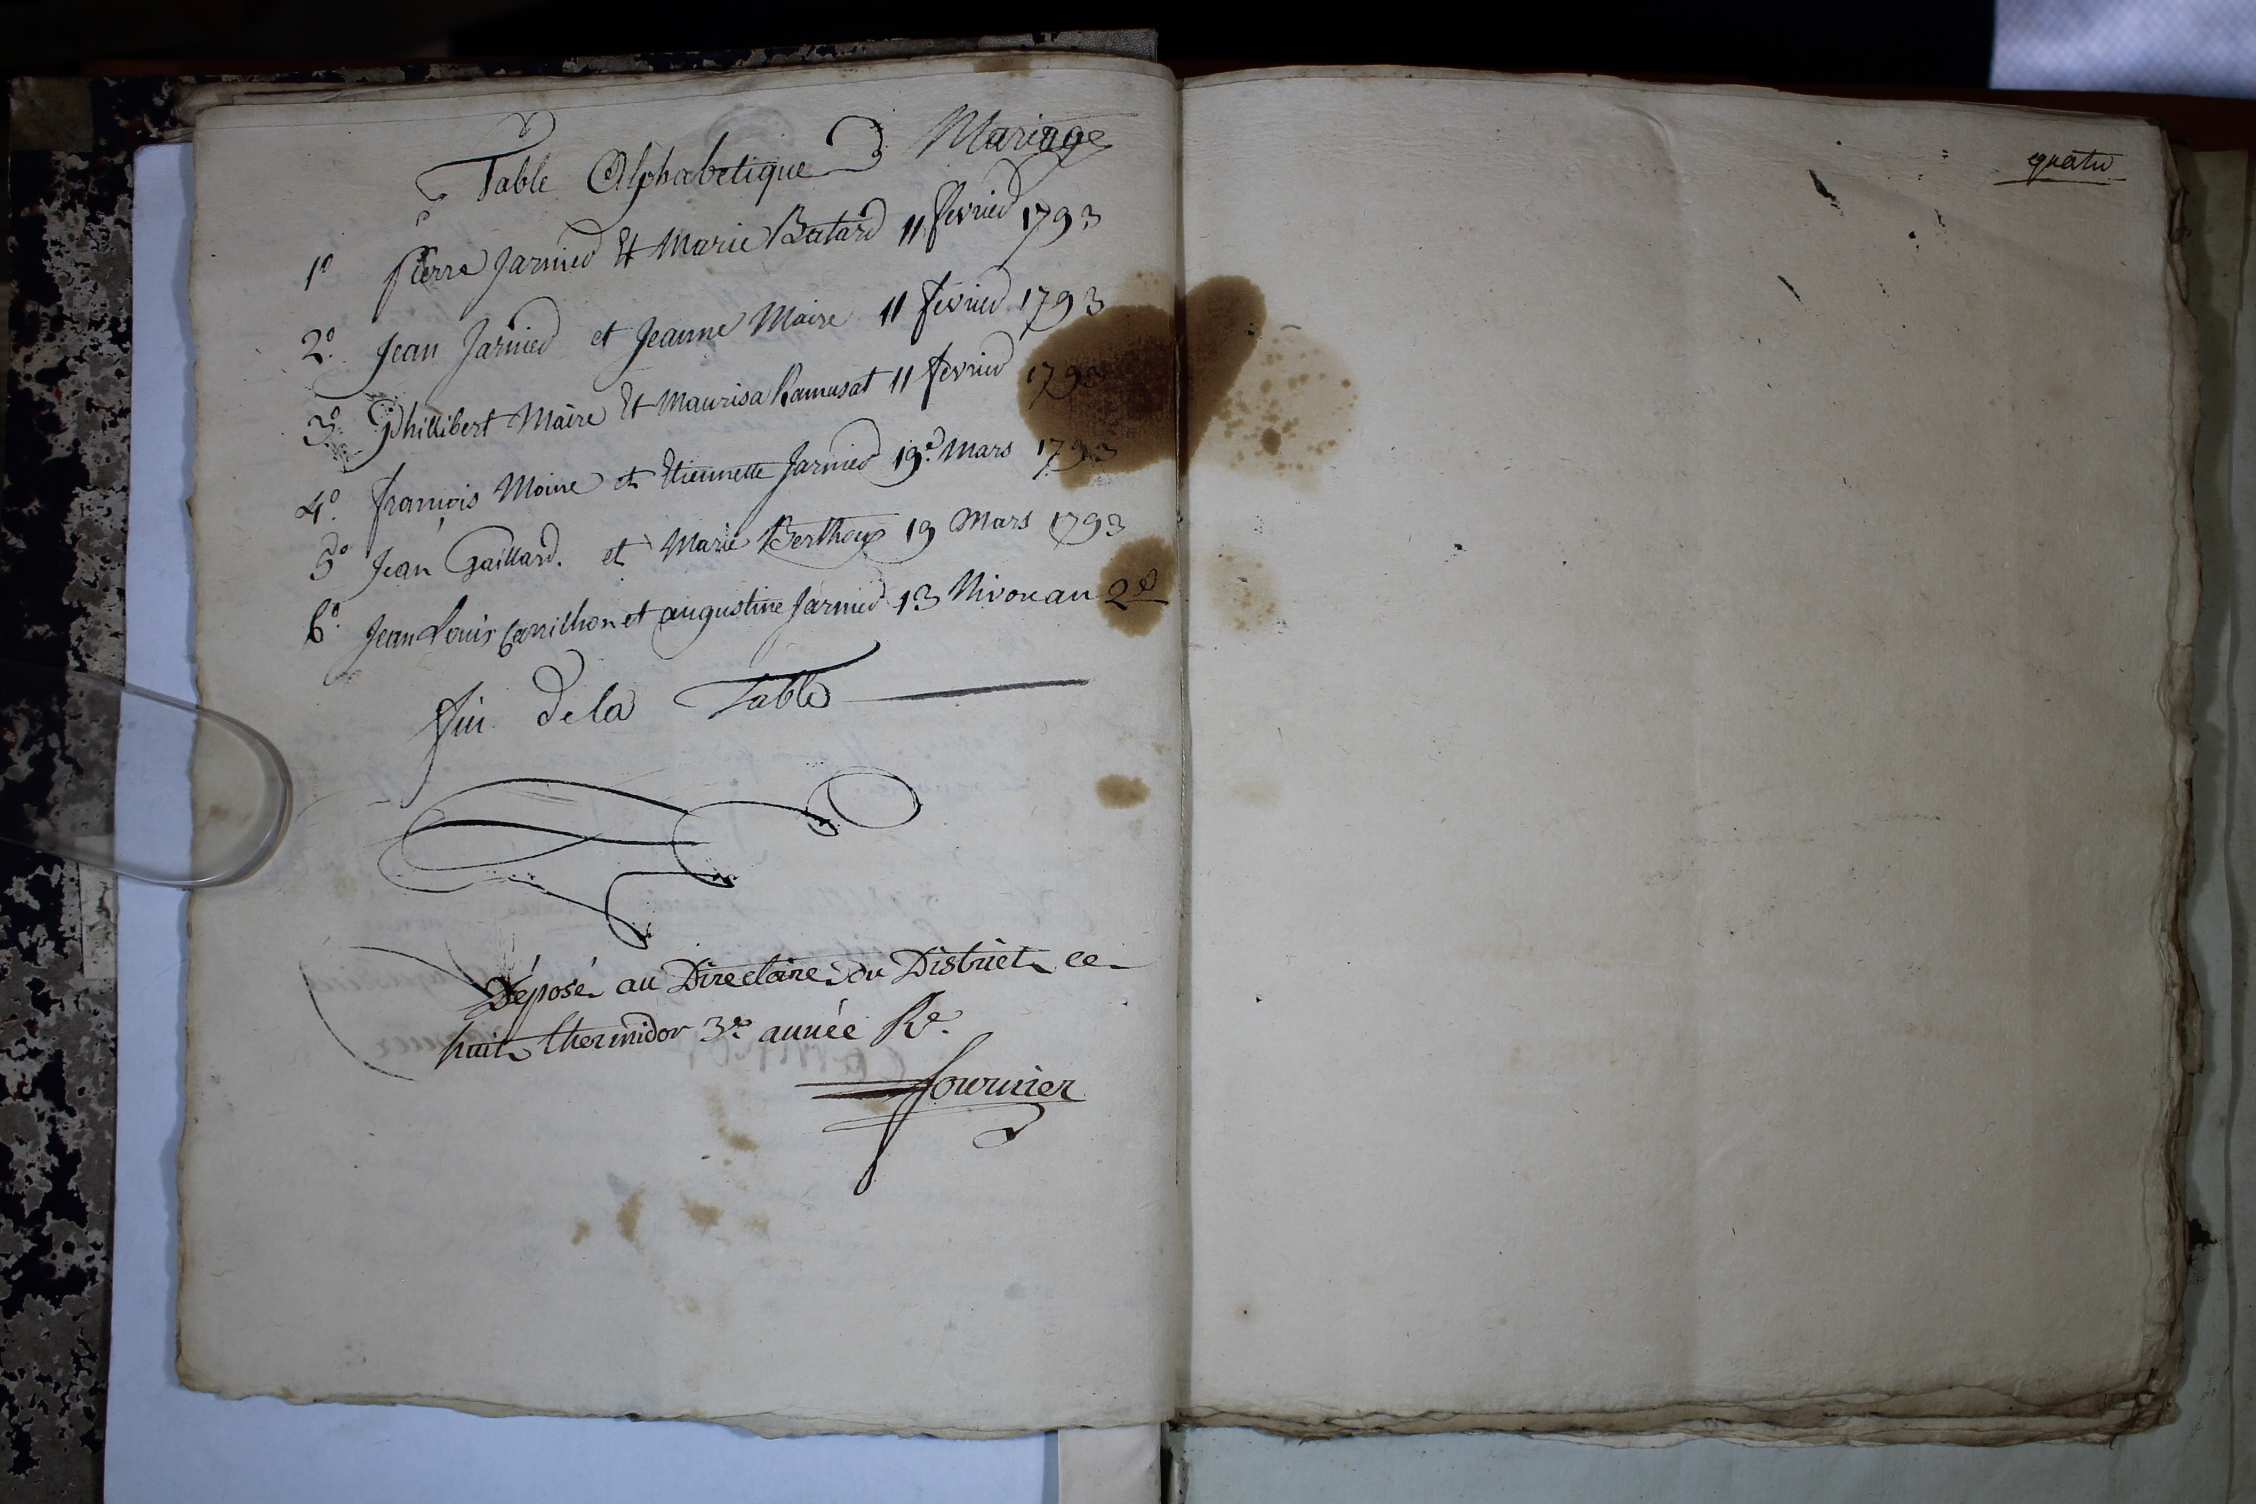 Table Alphabetique D Mariage
1° pierre Jarnier Et Marie Batard 11 fevrier 1793
2° Jean Jarnier et Jeanne Maire 11 fevrier 1793
3° Phillibert Maire Et Maurisa Ramusat 11 fevrier 1793
4° francois Moine et Etiennette Jarnier 19e Mars 1793
5° Jean Gaillard. et Marie Berthoux 19 Mars 1793
6° Jean Louis Carrichon et augustine Jarnier 13 Nivose an 2e
fin de la Table
Déposé au Directoire du District ce
huit thermidor 3e année Re.
fournier
quatre